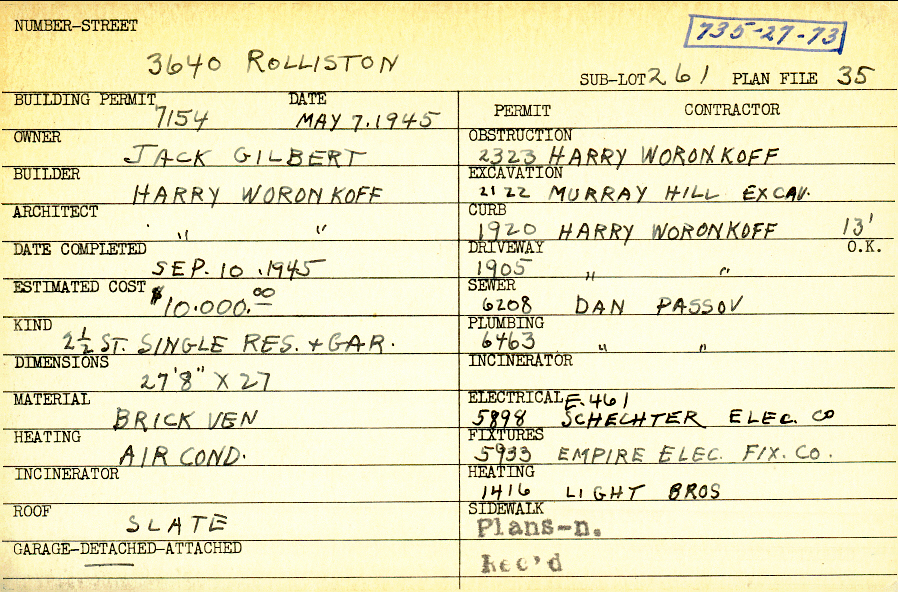 NUMBER-STREET
735-27-73
3640 ROLLISTON
SUB-LOT 261 PLAN FILE 35
BUILDING PERMIT DATE
7154 MAY 7.1945
OWNER
JACK GILBERT
BUILDER
HARRY WORONKOFF
ARCHITECT
" "
DATE COMPLETED
SEP. 10 .1945
ESTIMATED COST
$10.000.00
KIND
2½ ST. SINGLE RES. + GAR.
DIMENSIONS
27'8" X 27
MATERIAL
BRICK VEN
HEATING
AIR COND.
INCINERATOR
ROOF
SLATE
GARAGE-DETACHED-ATTACHED
PERMIT CONTRACTOR
OBSTRUCTION
2323 HARRY WORONKOFF
EXCAVATION
2122 MURRAY HILL EXCAV.
CURB
1920 HARRY WORONKOFF 13'
DRIVEWAY O.K.
1905 " "
SEWER
6208 DAN PASSOV
PLUMBING
6463 " "
INCINERATOR
ELECTRICAL E.461
5898 SCHECHTER ELEC. CO
FIXTURES
5933 EMPIRE ELEC. FIX. CO.
HEATING
1416 LIGHT BROS
SIDEWALK
Plans-n.
Rec'd